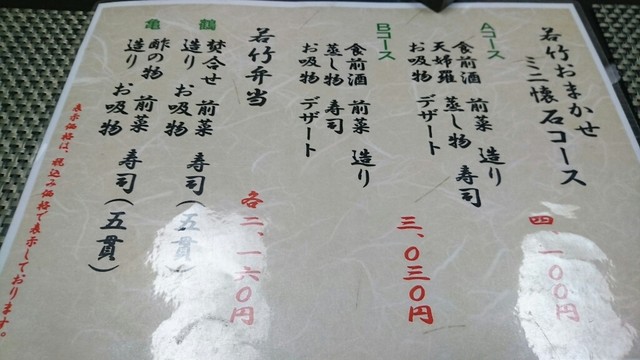 若竹おまかせ
ミニ懐石コース
Aコース
四、一〇〇円
食前酒 前菜 造り
天婦羅 蒸し物 寿司
お吸物 デザート
Bコース
三、〇三〇円
食前酒 前菜 造り
蒸し物 寿司
お吸物 デザート
若竹弁当
各二、一六〇円
鶴
焚合せ 前菜 寿司(五貫)
造り お吸物
亀
酢の物 前菜 寿司(五貫)
造り お吸物
表示価格は、税込み価格で表示しております。